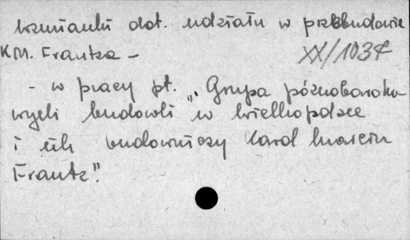 wzmianki dot. udziału w przebudowie
K.M. Frantza -
XX/1034
- w pracy pt. „Grupa późnobaroko-
wych budowli w Wielkopolsce
i ich budowniczy Karol Marcin
Frantz".